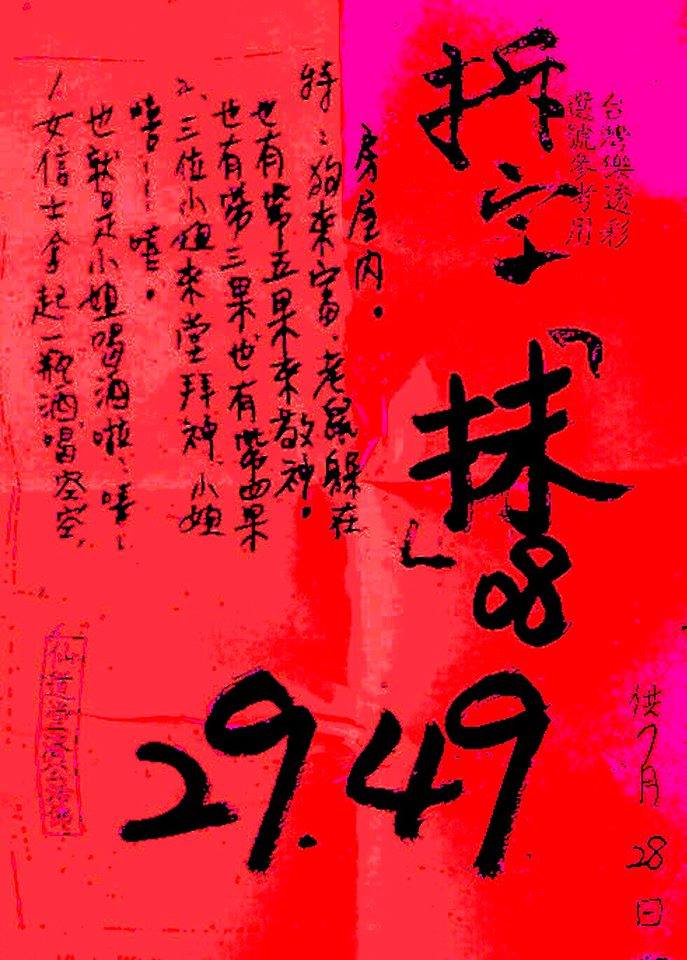 台灣樂透彩
選號參考用
拆字「抹」
08
29.49
供7月28日
1女信士拿起一瓶酒喝空空,
也就是小姐喝酒啦、嘻!
嘻!!嘻。
2、三位小姐來堂拜神、小姐
也有帶三果也有帶四果
也有帶五果來敬神。
特:狗來富、老鼠躲在
房屋內。